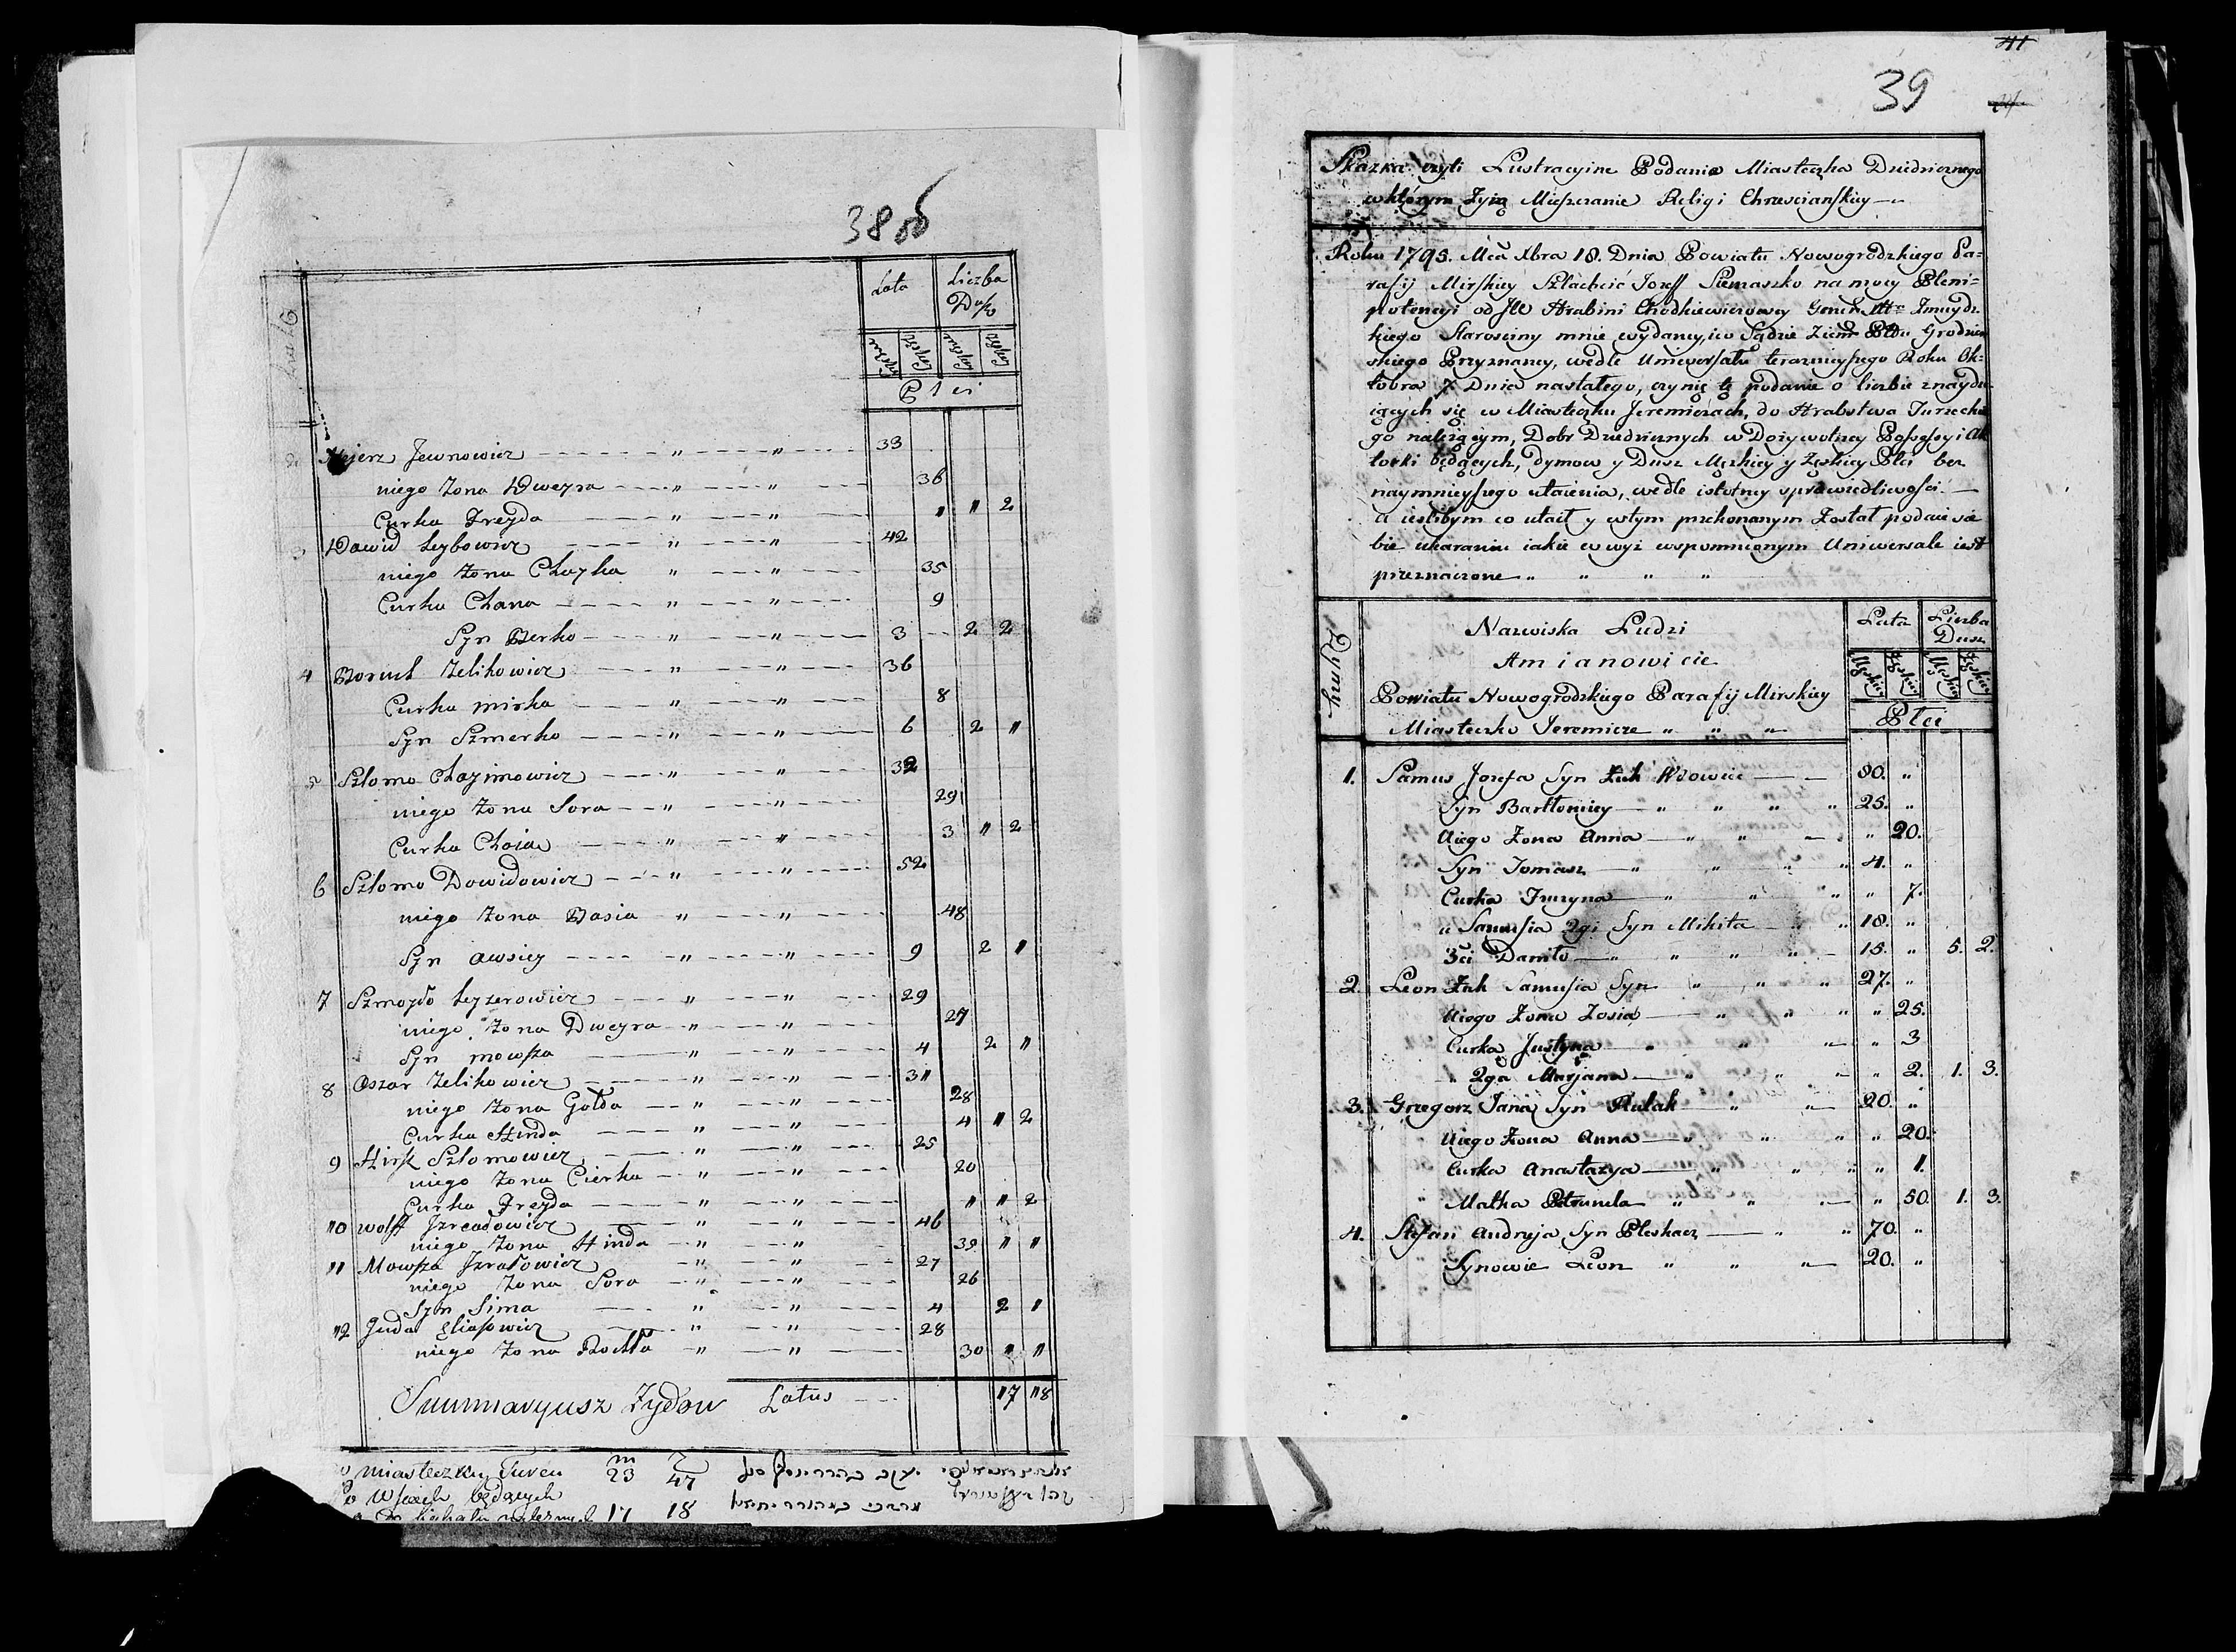 38 об
Lata Liczba Dusz
Płci
2 Mejerz Jewnowicz 33
niego Zona Dweyra 36
Curka Freyda " " 2
3 Dawid Leybowicz 42
niego Zona Chayka 35
Curka Chana 9
Syn Berko 3 2 2
4 Boruch Zelikowicz 36
Curka mirka 8
Syn Szmerko 6 2 "
5 Szlomo Chaymowicz 32
niego Zona Sora 29
Curka Chaia 3 " 2
6 Szlomo Dowidowicz 52
niego Zona Basia 48
Syn Awsiey 9 2 "
7 Szmoyło Leyzerowicz 29
niego Zona Dweyra 27
Syn mowsza 4 2 "
8 Oszor Zelikowicz 31
niego Zona Gołda 28
Curka Hinda 4 " 2
9 Hirsz Szlomowicz 25
niego Zona Cierka 20
Curka Freyda " " 2
10 wolff 46
niego Zona Hinda 39 " "
11 Mowsza Jzrałowicz 27
niego Zona Sora 26
Syn Sima 4 2 1
12 Juda Eliasowicz 28
niego Zona Rochla 30 " "
Summaryusz Zydow Latus 17 18
miasteczku Turcu 23 47
Wsiach będących
Kahału 17 18
41
39
Skazka czyli Lustracyine Podanie Miasteczka Dziedzicznego
w którym Żyią Mieszczanie Religi Chrzescianskiey
Roku 1795. Mca Xbra 18. Dnia Powiatu Nowogrodzkiego Pa=
rafij Mirskiey Szlachcic Jozeff Siemaszko na mocy Pleni=
potencyi od JW Hrabini Chodkiewiczowey Żmuydz
kiego Starosciny mnie wydaney, i w Sądzie Ziem Pttu Grodzien
skiego Przyznaney, wedle Uniwersału teraznieyszego Roku Ok=
tobra 7. Dnia nastałego, czynię tę podanie o liczbie znaydu
iących się w Miasteczku Jeremiczach, do Hrabstwa Turzeckie
go należącym, Dobr Dziedzicznych w Dożywotney Possessyi Ak
torki będących, dymow y Dusz Męzkiey y Żęskiey Płci bez
naymnieyszego utaienia, wedle istotney sprawiedliwości.
a ieslibym co utaił y wtym przekonanym Został podaie sie
bie ukaraniu iakie w wyż wspomnionym Uniwersale iest
przeznaczone
Dymy Nazwiska Ludzi Lata Liczba Dusz
A mianowicie Męzkiey Żęskiey Męzkiey Żęskiey
Powiatu Nowogrodzkiego Parafij Mirskiey
Miasteczko Jeremicze Płci
1. Samus Jozefa Syn Żuk Wdowiec 80. "
Syn Bartłomiey 25. "
Uiego Zona Anna " 20.
Syn Tomasz 4. "
Curka " 7.
u Samusia 2gi Syn Mikita 18. "
3ci Daniło 15. " 5. 2.
2. Leon Żuk Samusia Syn 27. "
Uiego Zona Zosia " 25.
Curka Justyna " 3
2ga Marjana " 2. 1. 3.
3. Grzegorz Jana Syn Kulak 20. "
Uiego Zona Anna " 20.
Curka Anastazya " 1.
Matka Petrunela " 50. 1. 3.
4. Stefan Andrzeja Syn Pleskacz 70. "
Synowie Leon 20. "